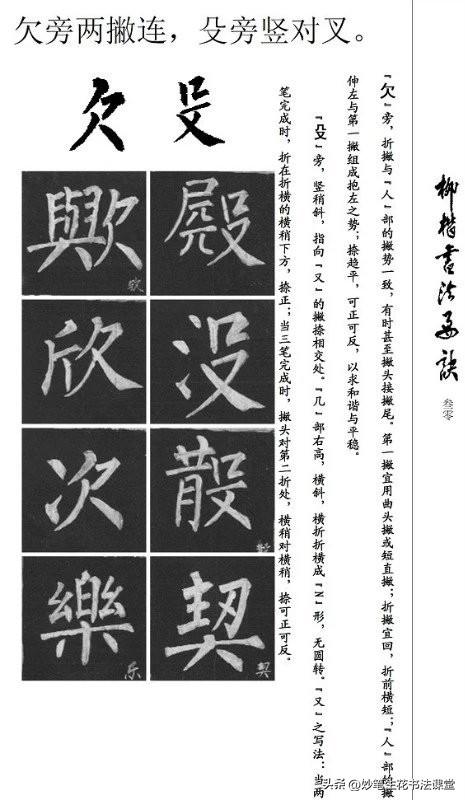 欠旁两撇连，殳旁竖对叉。
欠 殳
歟 欤 殿
欣 没
次
樂 乐 契 契
『欠』旁，折撇与『人』部的撇势一致，有时甚至撇头接撇尾。第一撇宜用曲头撇或短直撇；折撇宜回，折前横短；『人』部的撇
伸左与第一撇组成抱左之势；捺趋平，可正可反，以求和谐与平稳。
『殳』旁，竖稍斜，指向『又』的撇捺相交处。『几』部右高，横斜，横折折横成『N』形，无圆转。『又』之写法：当两
笔完成时，折在折横的横稍下方，捺正；当三笔完成时，撇头对第二折处，横稍对横稍，捺可正可反。
柳楷書法要訣
叁零
头条 @妙笔生花书法课堂